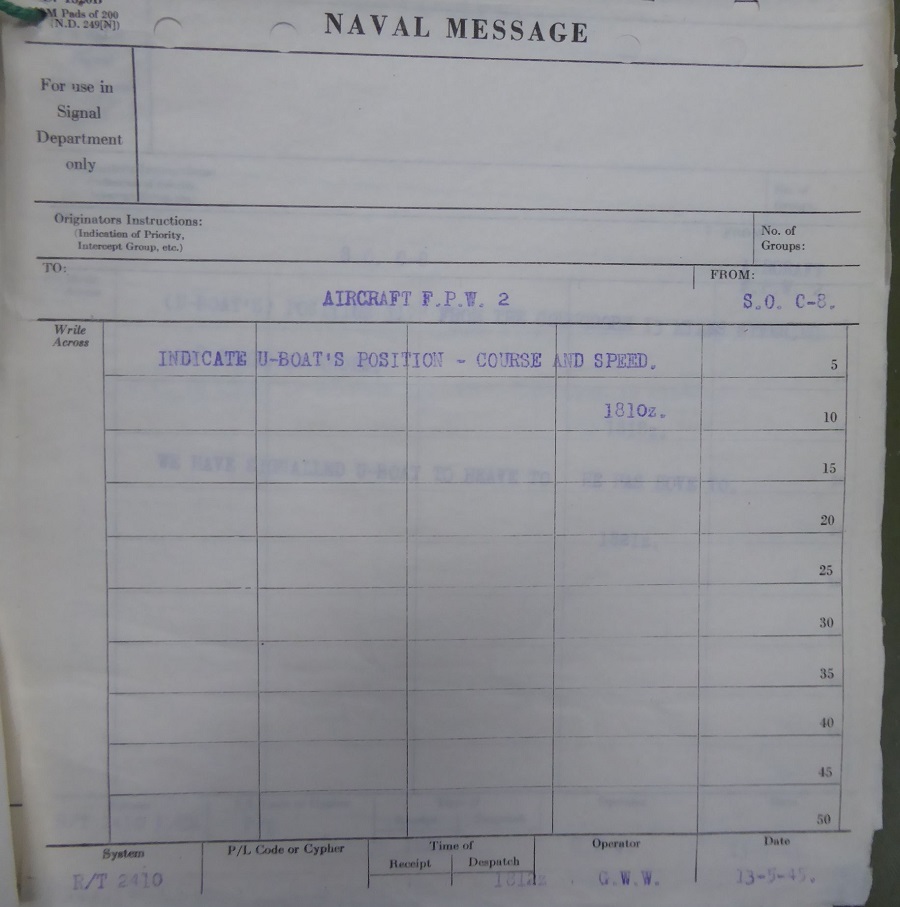 M Pads of 200
(N.D. 249[N])
NAVAL MESSAGE
For use in
Signal
Department
only
Originators Instructions:
(Indication of Priority,
Intercept Group, etc.)
No. of
Groups:
TO:
FROM:
AIRCRAFT F.P.W. 2
S.O. C-8.
Write
Across
INDICATE U-BOAT'S POSITION - COURSE AND SPEED.
5
1810z.
10
15
20
25
30
35
40
45
50
System
P/L Code or Cypher
Time of
Receipt
Despatch
Operator
Date
R/T 2410
1812z
G.W.W.
13-5-45.